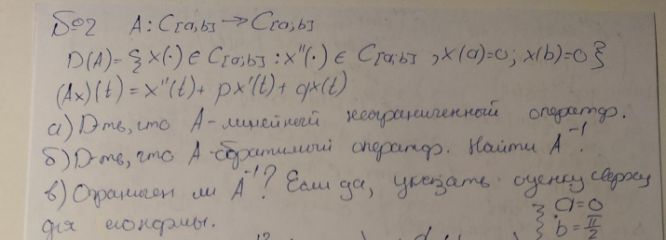 №2 A: C[a,b] → C[a,b]
D(A)={x(·) ∈ C[a,b] : x''(·) ∈ C[a,b], x(a)=0; x(b)=0}
(Ax)(t) = x''(t) + px'(t) + qx(t)
а) D-ть, что A - линейный неограниченный оператор.
б) D-ть, что A - обратимый оператор. Найти A⁻¹.
в) Ограничен ли A⁻¹? Если да, указать оценку сверху
для нормы.
{ a=0
b=π/2